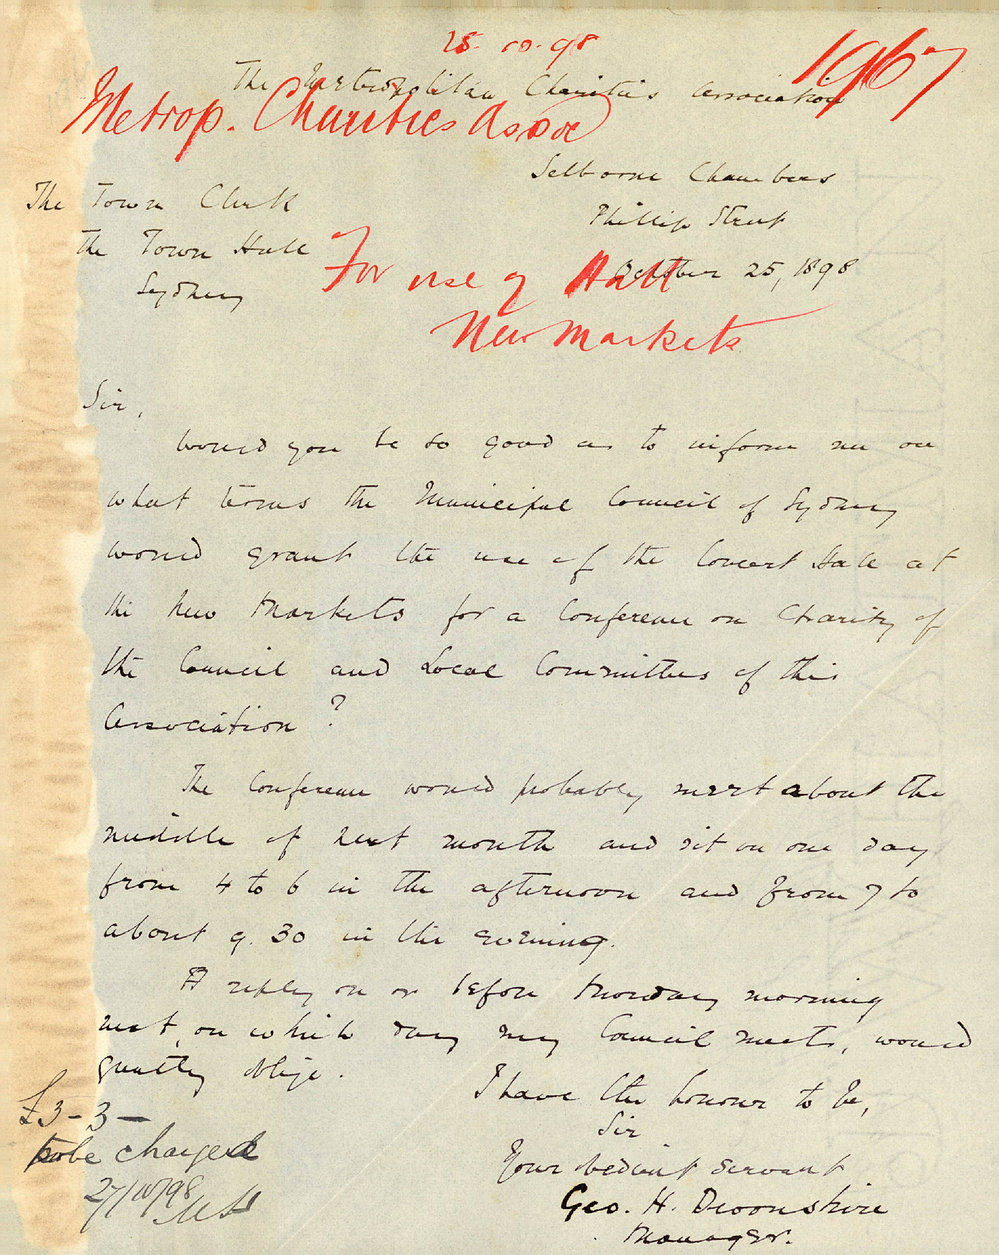 25.10.98
1967
The Metropolitan Charities Association
Metrop. Charities Assoc
Selborne Chambers
Phillip Street
October 25, 1898
The Town Clerk
the Town Hall
Sydney
For use of Hall
New Markets
Sir,
Would you be so good as to inform me on
what terms the Municipal Council of Sydney
would grant the use of the Concert Hall at
the New Markets for a Conference on Charity of
the Council and Local Committees of this
Association?
The Conference would probably meet about the
middle of next month and sit on one day
from 4 to 6 in the afternoon and from 7 to
about 9.30 in the evening.
A reply on or before Monday morning
next, on which day my Council meets, would
greatly oblige.
I have the honour to be,
Sir
Your obedient servant
Geo. H. Devonshire
Manager.
£3-3-
to be charged
27/10/98